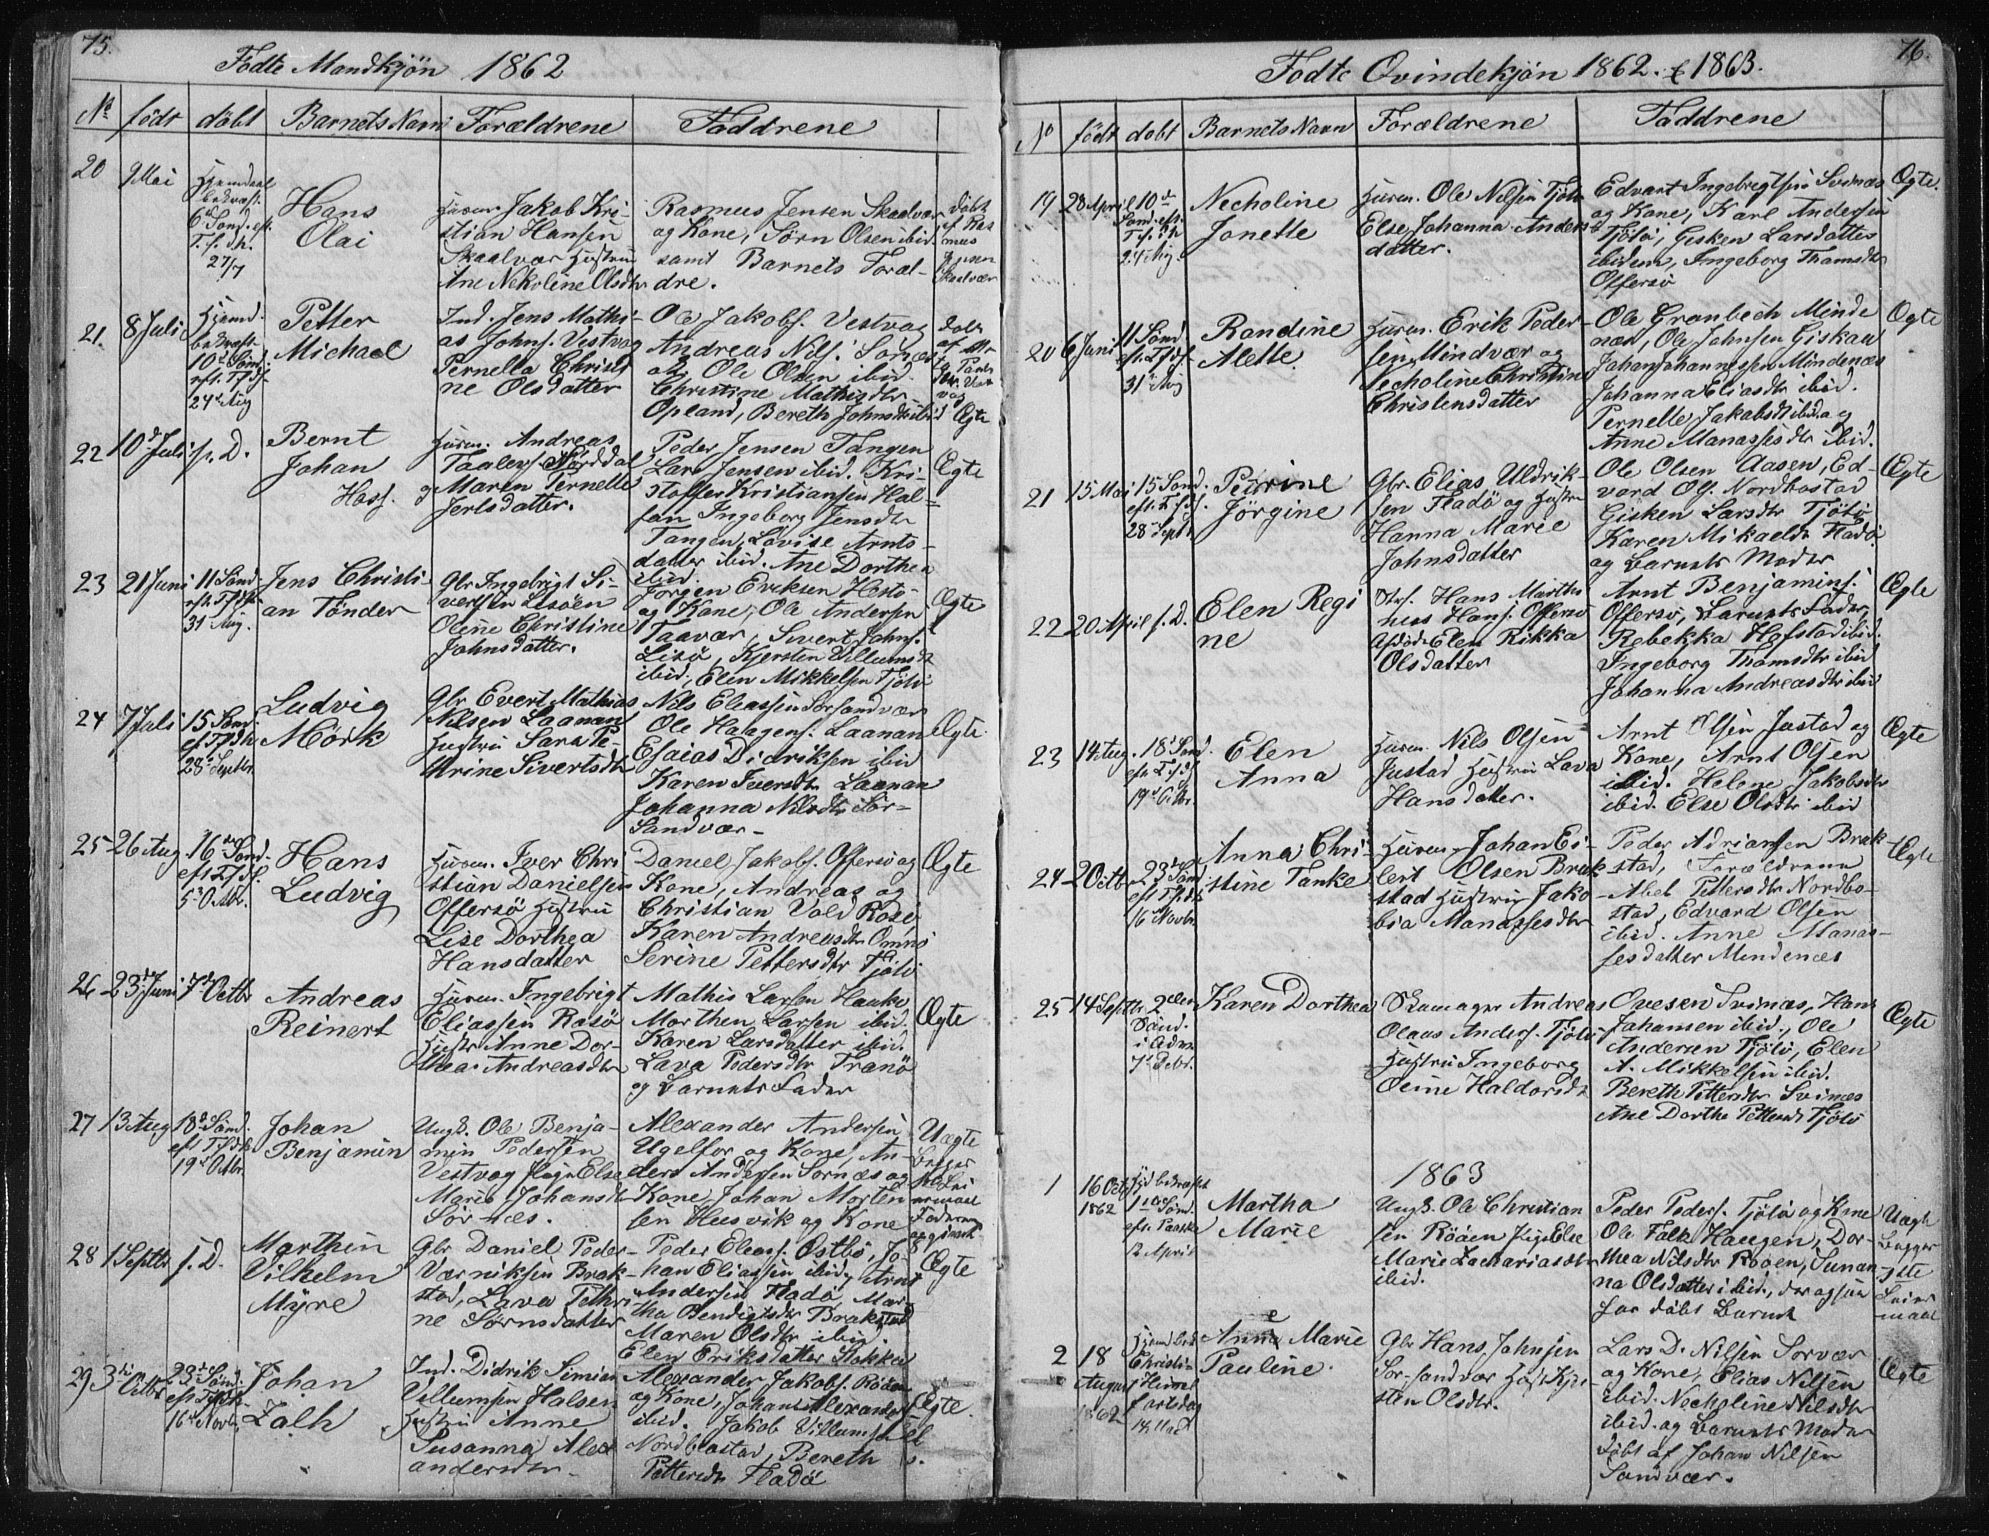 75.
Fødte Mandkjøn 1862
No født døbt Barnets Navn Forældrene Faddrene
20 9 Mai
Hjemdøbt
bekræft.
6te Sønd. eft.
Tr. f. Dk.
27/7
Hans
Olai
Huusm. Jakob Kri-
stian Hansen
Skaalvær Hustru
Ane Nekoline Olsdtr
Rasmus Jensen Skaalvær
og Kone, Sørn Olsen ibid.
samt Barnets Foræl-
dre.
døbt
af Ras
mus
Jensen
Skaalvær
21. 8 Juli
Hjemd.
bekræft.
10de Sønd.
24de Aug
Petter
Michael
Ind. Jens Mathi-
as Johns. Vestvog
Pernella Christi
ne Olsdatter
Ole Jakobs. Vestvog
Andreas Nils. Sørnæs
Ole Olsen ibid.
Christine Mathisdtr
Opland, Bereth Johnsdtr ibid
Ægte
22 10de Juli s. D.
Bernt
Johan
Hass.
Huusm. Andreas
Taalefs. Norddal
og Maren Pernelle
Jerlsdatter.
Peder Jensen Tangen
Lars Jensen ibid. Kri-
stoffer Kristiansen Hal-
Ingeborg Jensdtr
Tangen, Lovise Arnts-
datter ibid. Ane Dorthea
ibid.
Ægte
23 21 Juni
11 Sønd.
31 Aug.
Jens Christi-
an Tønder
Gbr Ingebrigt Si-
vertsen Lisøen
Oline Christine
Johnsdatter.
Jørgen Eriksen Hestø-
og Kone, Ole Andersen
Taavær, Sivert Johns.
Lisø, Kjersten Villumsdtr
ibid, Elen Mikkelsen Tjøtø
Ægte
24 7 Juli
15 Sønd.
28de Septbr.
Ludvig
Mørk
Gbr Evert Mathias
Nilsen Laanan
Hustru Sara Pe-
trine Sivertsdtr
Nils Eliassen Sørsandvær
Ole Haagens. Laanan
Esaias Didriksen ibid
Karen Iversdtr Laanan
Johanna Nilsdtr Sør-
Sandvær-
Ægte.
25 26 Aug
16de Sønd.
5 Octbr.
Hans
Ludvig
Huusm. Iver Chri
stian Danielsen
Offersø Hustru
Lise Dorthea
Hansdatter
Daniel Jakobs. Offersø og
Kone, Andreas og
Christian Vold Rosø
Karen Andreasdtr Omnø
Serine Pettersdtr Tjøtø
Ægte
26 23de Juni 7de Octbr
Andreas
Reinert
Huusm. Ingebrigt
Eliassen Rosø
Hustr Anne Dor-
thea Andreasdtr
Mathis Larsen Hauke
Morthen Larsen ibid.
Karen Larsdatter ibid.
Lava Pedersdtr Tranø
og Barnets Fader
Ægte
27 13 Aug
18de Sønd.
19de Octbr.
Johan
Benjamin
Ungk. Ole Benja-
min Pedersen
Vestvog Pige Else
Marie Johansdtr
Sørnæs.
Alexander Andersen
Ugelfor og Kone, An-
ders Andersen Sørnæs og
Kone, Johan Morten-
sen Husvik og Kone
Uægte
28 1 Septbr s. D.
Morthin
Vilhelm
Myre
Gbr Daniel Peder
Værniksen Brak-
stad, Lava Pethri-
ne Sørnsdatter
Peder Eleass. Østbø, Jo-
han Eliassen ibid, Arnt
Andersen Fladø Mar-
tha Bendigtsdtr Brakstad
Maren Olsdtr ibid.
Elen Eriksdatter Stokka
Ægte
29 3die Octbr
23de Sønd.
16de Novbr
Johan
Falk
Ind. Didrik Simian
Villumsen Halsen
Hustru Anne
Susanna Alex
andersdtr-
Alexander Jakobs. Røden
og Kone, Johan Alexanders
ibid. Jakob Villums
Nordbostad, Bereth
Pettersdtr Fladø
Ægte.
76.
Fødte Qvindekjøn 1862. & 1863.
No født døbt Barnets Navn Forældrene Faddrene
19 28 April
10de
Sønd. eft.
24 Aug.
Necholine
Jonette
Huusm. Ole Nilsen Tjøtø
Else Johanna Anders
datter.
Edvart Ingebregtsen Svinæs
og Kone, Karl Andersen
Tjøtø, Gisken Larsdatter
ibidem, Ingeborg Thomsdtr
Offersø
Ægte.
20 6 Juni
11 Sønd
31te Aug
Randine
Alette.
Huusm. Erik Peder-
sen Mindvær og
Necholine Christine
Christensdatter
Ole Grønbech Minde
næs, Ole Johnsen Giskau
Johan Johannesen Mindenæs
Johanna Eliasdtr ibid.
Pernelle Jakobsdtr ibid. og
Anne Manassesdtr ibid.
Ægte
21 15 Mai
15 Sønd.
28 Septbr
Petrine
Jørgine
Gbr. Elias Uldrik-
sen Fladø og Hustru
Hanna Marie
Johnsdatter
Ole Olsen Aasen, Ed-
vard Ols. Nordbostad
Gisken Larsdtr Tjøtø
Karen Mikaelsdtr Fladø
og Barnets Moder
Ægte
22 20 April s. D.
Elen Regi
ne
Hans Marthi
nus Hans. Offersø
Afdøde Elen Rikka
Olsdatter
Arnt Benjamins.
Offersø, Barnets Fader,
Rebekka Hofstad ibid.
Ingeborg Thomsdtr ibid
Johanna Andreasdtr ibid
Ægte
23 14 Aug.
18de Sønd.
19de Octbr.
Elen
Anna
Huusm. Nils Olsen
Justad Hustru Lava
Hansdatter.
Arnt Olsen Justad og
Kone, Arnt Olsen
ibid. Helene Jakobsdtr
ibid. Else Olsdtr ibid
Ægte
24 2 Octbr
23de Sønd
16 Novbr
Anna Chri-
stine Tanke
Huusm. Johan Ei-
lert Olsen Brak
stad Hustru Jako-
bia Manassesdtr
Peder Adriansen Brak
stad, Forældrene
Abel Pettersdtr Nordbo-
stad, Edvard Olsen
ibid. Anne Manas-
sesdatter Mindenæs
Ægte
25 14 Septbr
2den
Sønd.
i Adv.
7de Debr.
Karen Dorthea
Skomager Andreas
Olaas Anders. Tjøtø
Hustru Ingeborg
Oline Haldorsdtr
Ovesen Svinæs, Hans
Johansen ibid., Ole
Andersen Tjøtø, Elen
A. Mikkelsen ibid.
Bereth Pettersdtr Svinæs
Ane Dorthe Pettersdtr Tjøtø
Ægte
1863
1 16 Octbr
1862
1ste Sønd.
eft. Paaske
12 April
Martha
Marie
Ungk. Ole Christian
sen Røøen Pige Else
Marie Zachariasdtr
ibid.
Peder Peders. Tjøtø og Kone
Ole Falk Haugen, Dor-
thea Nilsdtr Røøen, Sunan-
na Olsdatter ibid., der ogsaa
har døbt Barnet
Uægte
2 18
August
1862
Christi
Himmel
fartsdag
14 Mai
Anne Marie
Pauline.
Gbr Hans Johnsen
Sør-Sandvær Hustr Kjer
sten Olsdtr.
Lars D. Nilsen Sørvær
og Kone, Elias Nilsen
ibid. Necholine Nilsdtr
ibid. og Barnets Moder
døbt af Johan Nilsen
Sandvær.
Ægte